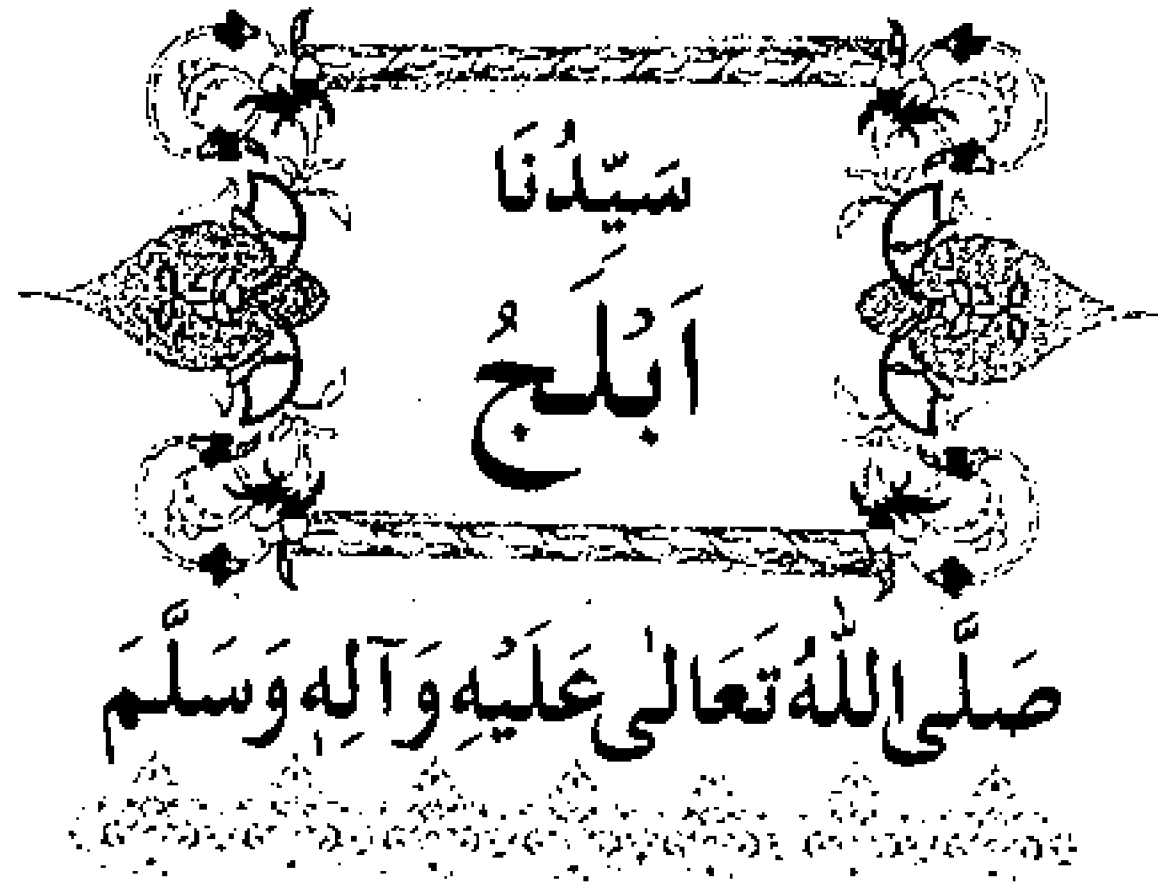 سَیِّدُنَا
اَبْلَجُ
صَلَّی اللّٰهُ تَعَالٰی عَلَیْهِ وَآلِهٖ وَسَلَّمَ